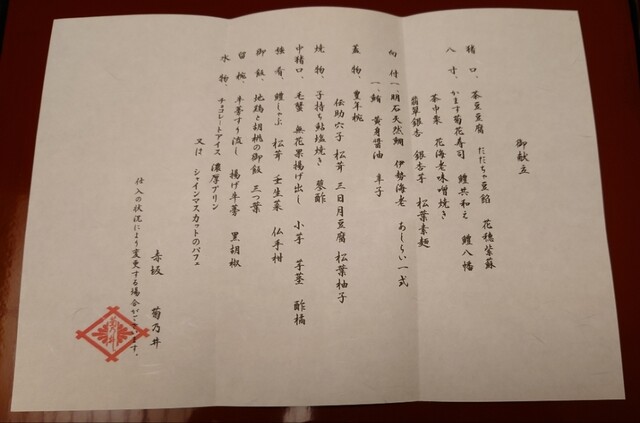 御献立
猪口、茶豆豆腐 だだちゃ豆餡 花穂紫蘇
八寸、かます菊花寿司 鱧共和え 鱧八幡
茶巾栗 花海老味噌焼き
翡翠銀杏 銀杏芋 松葉素麺
向付一、明石天然鯛 伊勢海老 あしらい一式
一、鮪 黄身醤油 辛子
蓋物、豊年椀
伝助穴子 松茸 三日月豆腐 松葉柚子
焼物、子持ち鮎塩焼き 蓼酢
中猪口、毛蟹 無花果揚げ出し 小芋 芋茎 酢橘
強肴、鱧しゃぶ 松茸 壬生菜 仏手柑
御飯、地鶏と胡桃の御飯 三つ葉
留椀、牛蒡すり流し 揚げ牛蒡 黒胡椒
水物、チョコレートアイス 濃厚プリン
又は シャインマスカットのパフェ
仕入の状況により変更する場合がございます。
赤坂 菊乃井